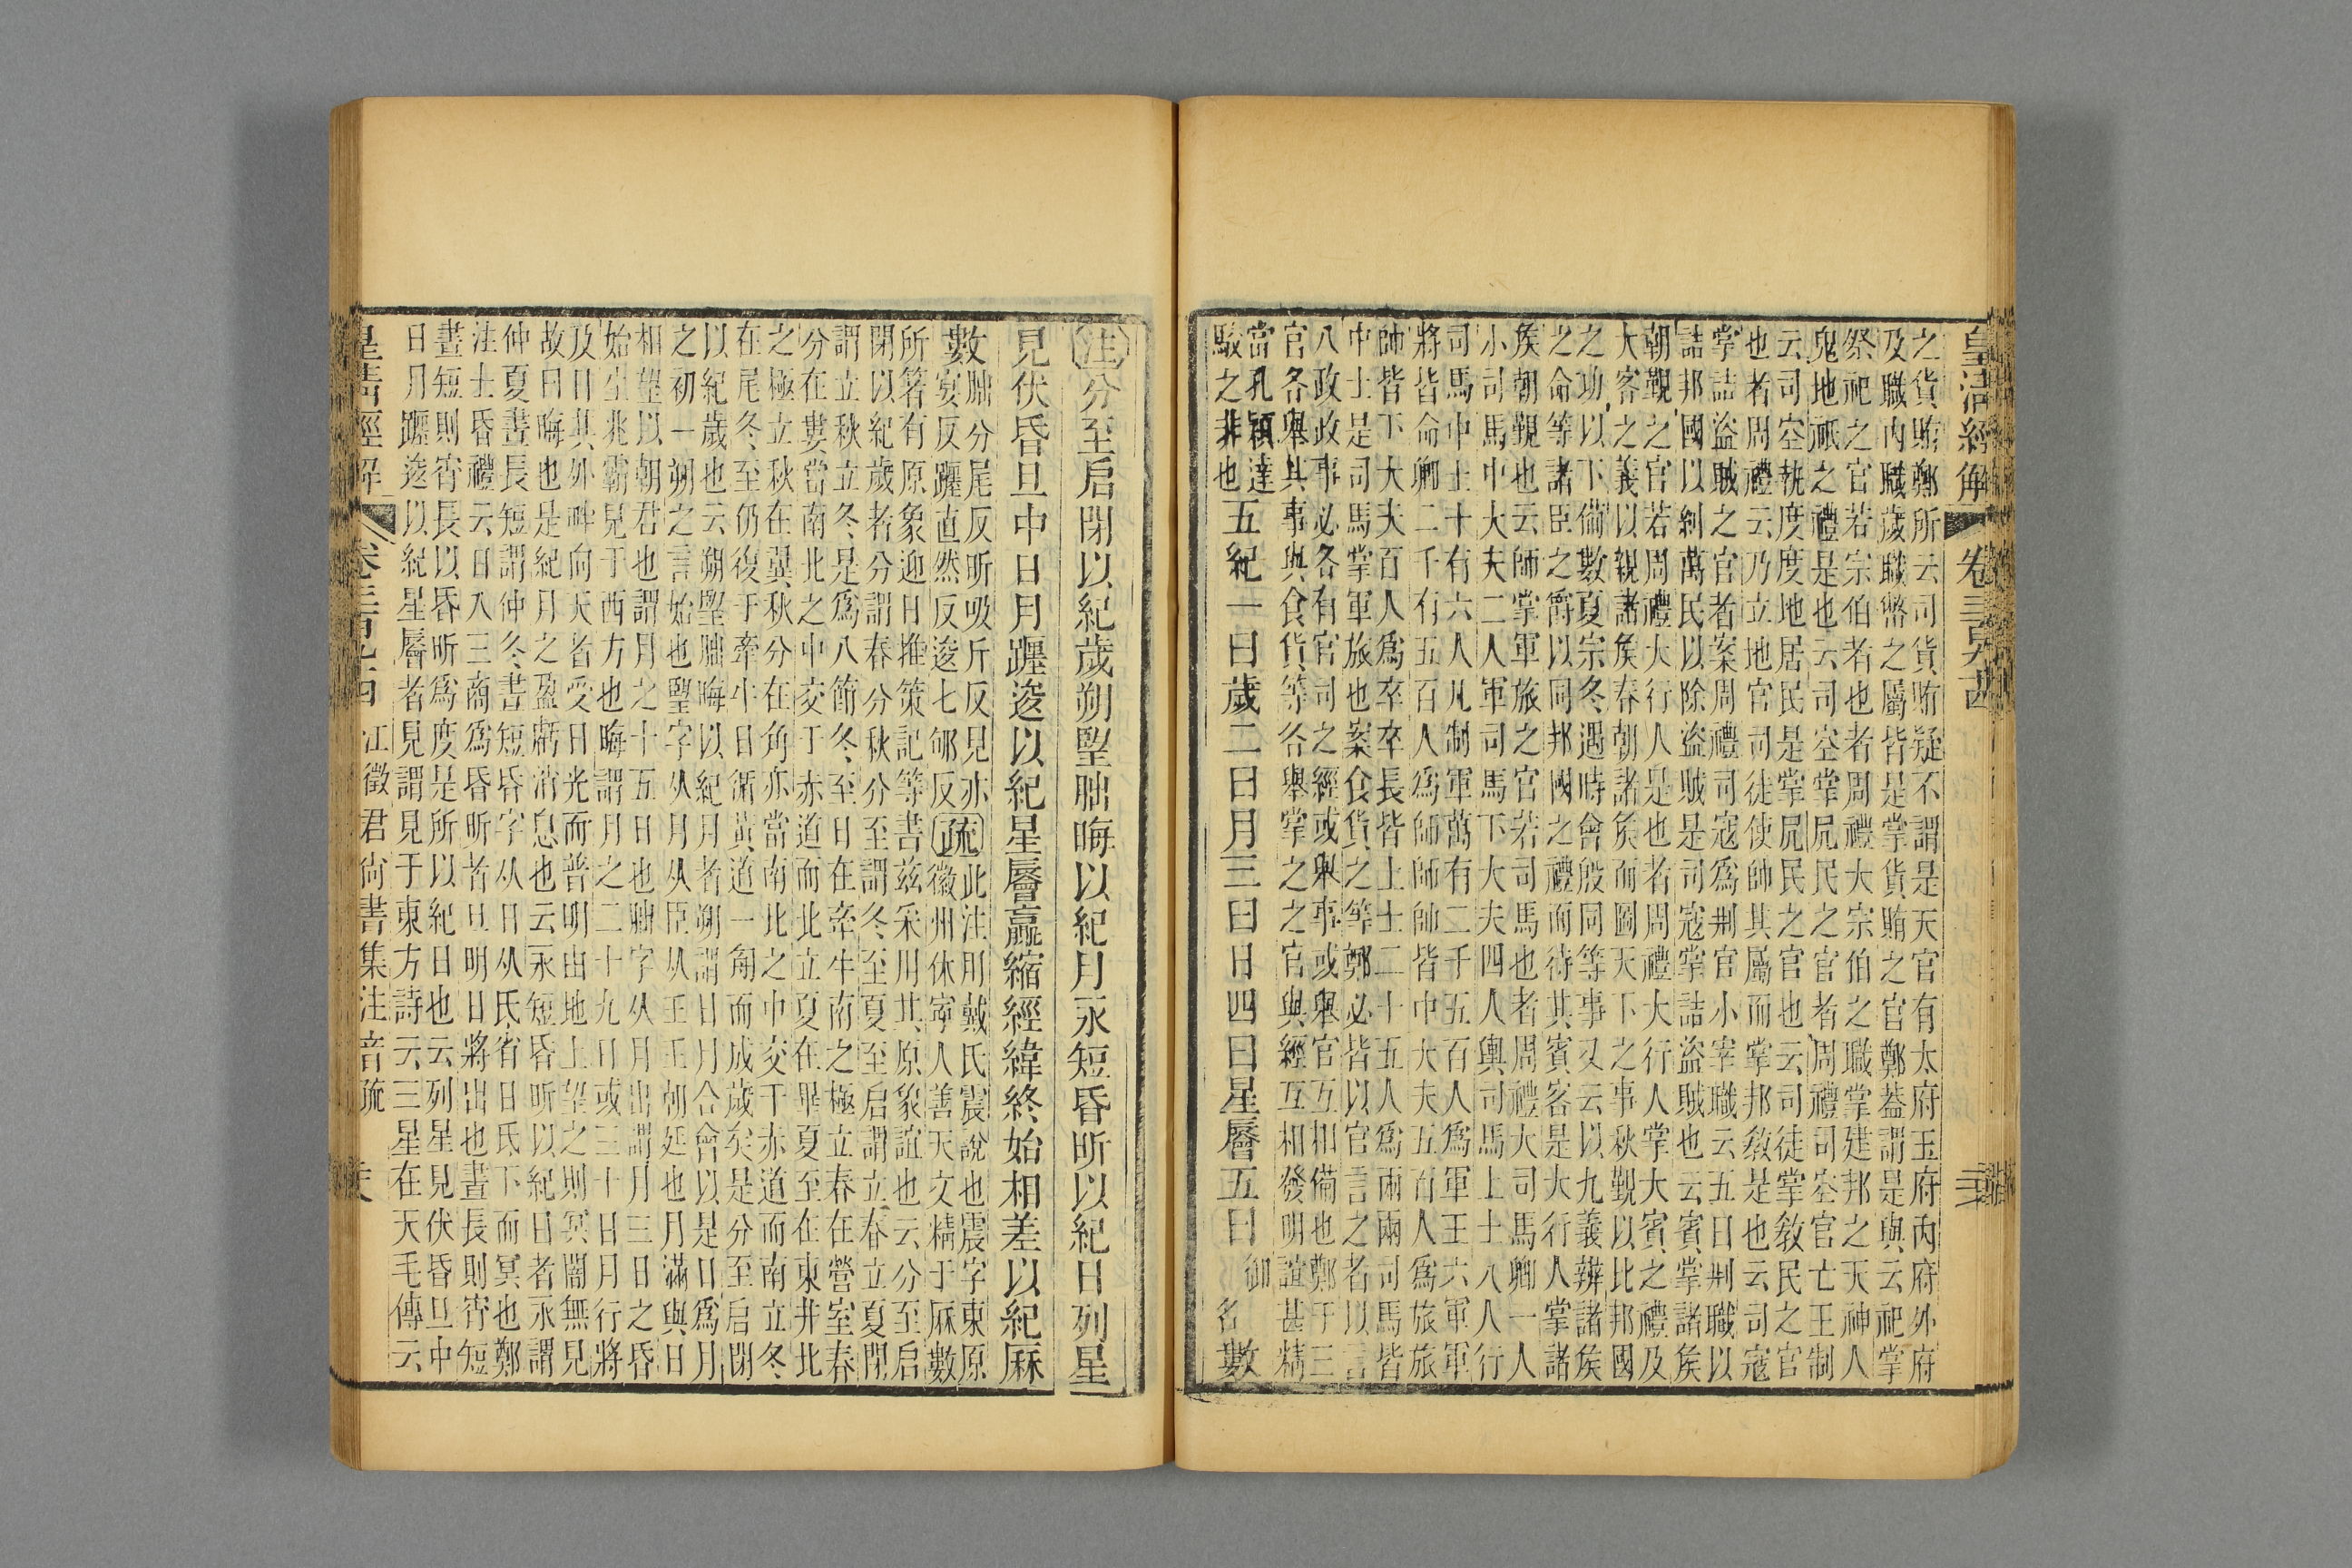 皇清經解
卷三百九十四
之貨賄鄭所云司貨賄疑不謂是天官有太府玉府內府外府
及職內職歲職幣之屬皆是掌貨賄之官鄭葢謂是與云祀掌
祭祀之官若宗伯者也者周禮大宗伯之職掌建邦之天神人
鬼地祇之禮是也云司空掌凥民之官者周禮司空官亡王制
云司空執度度地居民是掌凥民之官也云司徒掌敎民之官
也者周禮云乃立地官司徒使帥其屬而掌邦敎是也云司寇
掌詰盜賊之官者案周禮司寇爲㓝官小宰職云五曰㓝職以
詰邦國以糾萬民以除盜賊是司寇掌詰盜賊也云賓掌諸矦
朝覲之官若周禮大行人是也者周禮大行人掌大賓之禮及
大客之義以親諸矦春朝諸矦而圖天下之事秋覲以比邦國
之功以下僃數夏宗冬遇時會殷同等事又云以九義辨諸矦
之命等諸臣之爵以同邦國之禮而待其賓客是大行人掌諸
矦朝覲也云師掌軍旅之官若司馬也者周禮大司馬卿一人
小司馬中大夫二人軍司馬下大夫四人輿司馬上士八人行
司馬中士十有六人凡制軍萬有二千五百人爲軍王六軍軍
將皆命卿二千有五百人爲師師帥皆中大夫五百人爲旅旅
帥皆下大夫百人爲卒卒長皆上士二十五人爲兩兩司馬皆
中士是司馬掌軍旅也案食貨之等鄭必皆以官言之者以言
八政政事必各有官司之經或舉事或舉官互相僃也鄭于三
官各舉其事與食貨等各舉掌之之官與經互相發明誼甚精
當孔穎達
駮之非也
五紀一曰歲二曰月三曰日四曰星䢅五曰
御
名
數
注分至启閉以紀歲朔朢朏晦以紀月永短昏昕以紀日列星
見伏昏旦中日月躔逡以紀星䢅贏縮經緯終始相差以紀厤
數
朏分尾反昕吸斤反見亦
宴反躔直然反逡七郇反
疏
此注用戴氏震說也震字東原
徽州休寧人善天文精于厤數
所箸有原象迎日推策記等書茲采用其原象誼也云分至启
閉以紀歲者分謂春分秋分至謂冬至夏至启謂立春立夏閉
謂立秋立冬是爲八節冬至日在牽牛南之極立春在營室春
分在婁當南北之中交于赤道而北立夏在畢夏至在東井北
之極立秋在翼秋分在角亦當南北之中交于赤道而南立冬
在尾冬至仍復于牽牛日循黃道一匊而成歲矣是分至启閉
以紀歲也云朔朢朏晦以紀月者朔謂日月合會以是日爲月
之初一朔之言始也朢字从月从臣从𡈼𡈼朝廷也月滿與日
相望以朝君也謂月之十五日也朏字从月出謂月三日之昏
始生兆霸見于西方也晦謂月之二十九日或三十日月行將
及日其外畔向天者受日光而普明由地上望之則冥闇無見
故曰晦也是紀月之盈虧消息也云永短昏昕以紀日者永謂
仲夏晝長短謂仲冬晝短昏字从日从氏省日氏下而冥也鄭
注士昏禮云日入三商爲昏昕者旦明日將出也晝長則宵短
晝短則宵長以昏昕爲度是所以紀日也云列星見伏昏旦中
日月躔逡以紀星䢅者見謂見于東方詩云三星在天毛傳云
皇清經解
卷三百九十四
江徵君尚書集注音疏